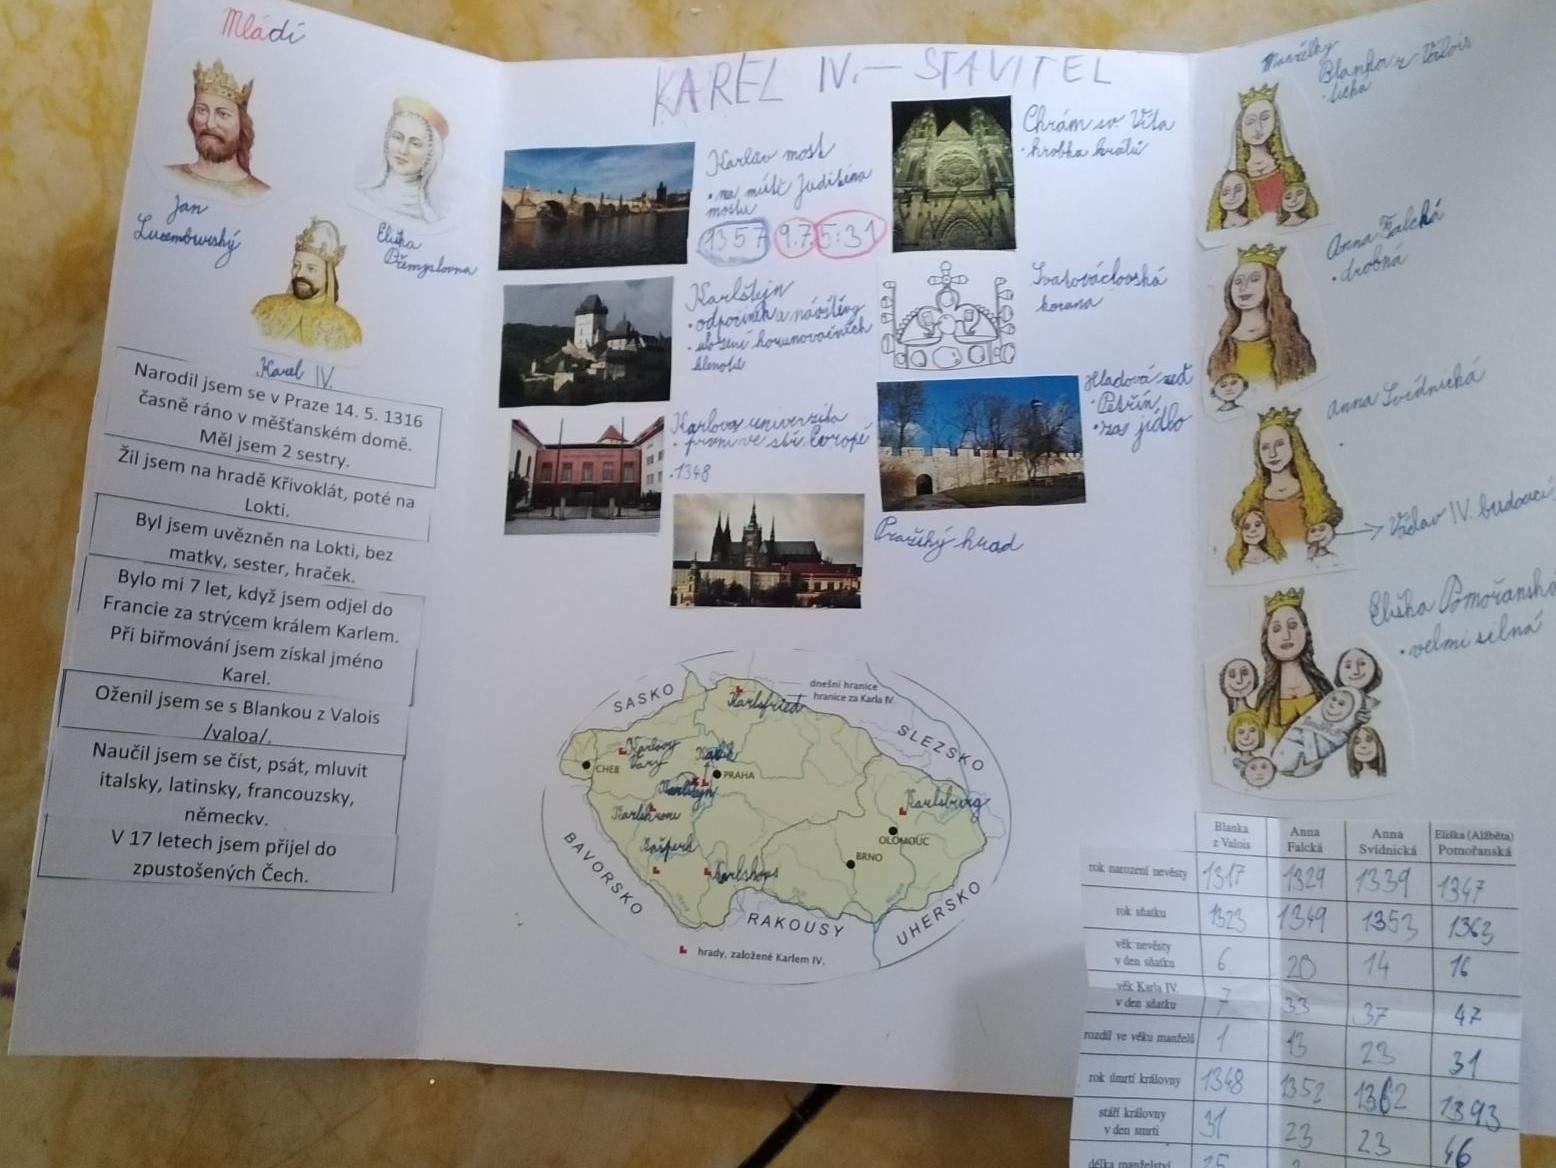 Mládí
Jan
Lucemburský
Eliška
Přemyslovna
Karel IV.
Narodil jsem se v Praze 14. 5. 1316
časně ráno v měšťanském domě.
Měl jsem 2 sestry.
Žil jsem na hradě Křivoklát, poté na
Lokti.
Byl jsem uvězněn na Lokti, bez
matky, sester, hraček.
Bylo mi 7 let, když jsem odjel do
Francie za strýcem králem Karlem.
Při biřmování jsem získal jméno
Karel.
Oženil jsem se s Blankou z Valois
/valoa/.
Naučil jsem se číst, psát, mluvit
italsky, latinsky, francouzsky,
německy.
V 17 letech jsem přijel do
zpustošených Čech.
KAREL IV. – STAVITEL
Karlův most
• na místě Juditina
mostu
1357 9.7. 5:31
Karlštejn
• odpočinek a návštěvy
• uložení korunovačních
klenotů
Karlova univerzita
• první ve stř. Evropě
• 1348
Chrám sv. Víta
• hrobka králů
Svatováclavská
koruna
Hladová zeď
• Petřín
• za jídlo
Pražský hrad
dnešní hranice
hranice za Karla IV.
SASKO
SLEZSKO
BAVORSKO
RAKOUSY
UHERSKO
Karlsfried
Karlovy
Vary
CHEB
PRAHA
Karlštejn
Karlsburg
OLOMOUC
BRNO
Kašperk
hrady, založené Karlem IV.
Manželky
Blanka z Valois
• tichá
Anna Falcká
• drobná
Anna Svídnická
Václav IV. budoucí
Eliška Pomořanská
• velmi silná
Blanka
z Valois
Anna
Falcká
Anna
Svídnická
Eliška (Alžběta)
Pomořanská
rok narození nevěsty 1317 1329 1339 1347
rok sňatku 1323 1349 1353 1363
věk nevěsty
v den sňatku 6 20 14 16
věk Karla IV.
v den sňatku 7 33 37 47
rozdíl ve věku manželů 1 13 23 31
rok úmrtí královny 1348 1352 1362 1393
stáří královny
v den smrti 31 23 23 46
délka manželství 25